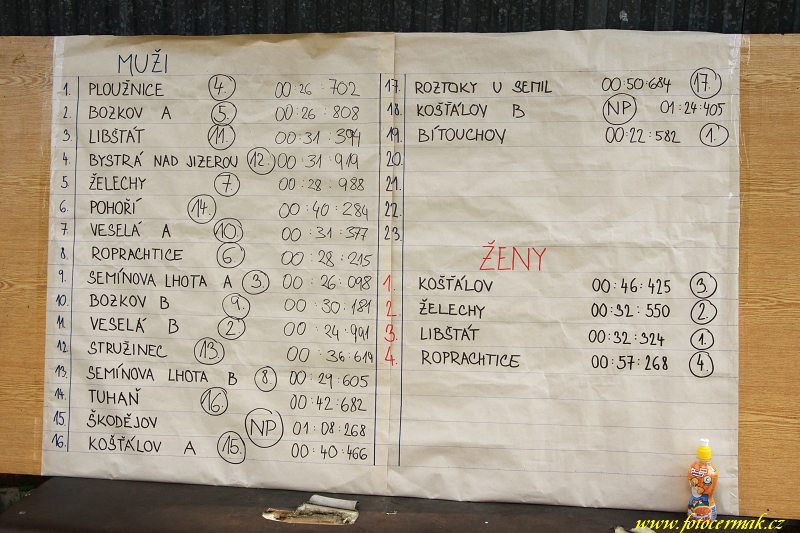 MUŽI
1. PLOUŽNICE 4. 00:26:702
2. BOZKOV A 5. 00:26:808
3. LIBŠTÁT 11. 00:31:394
4. BYSTRÁ NAD JIZEROU 12. 00:31:919
5. ŽELECHY 7. 00:28:988
6. POHOŘÍ 14. 00:40:284
7. VESELÁ A 10. 00:31:377
8. ROPRACHTICE 6. 00:28:215
9. SEMÍNOVA LHOTA A 3. 00:26:098
10. BOZKOV B 9. 00:30:181
11. VESELÁ B 2. 00:24:991
12. STRUŽINEC 13. 00:36:614
13. SEMÍNOVA LHOTA B 8. 00:29:605
14. TUHAŇ 16. 00:42:682
15. ŠKODĚJOV NP 01:08:268
16. KOŠŤÁLOV A 15. 00:40:466
17. ROZTOKY U SEMIL 00:50:684 17.
18. KOŠŤÁLOV B NP 01:24:405
19. BÍTOUCHOV 00:22:582 1.
20.
21.
22.
23.
ŽENY
1. KOŠŤÁLOV 00:46:425 3.
2. ŽELECHY 00:32:550 2.
3. LIBŠTÁT 00:32:324 1.
4. ROPRACHTICE 00:57:268 4.
www.fotocermak.cz